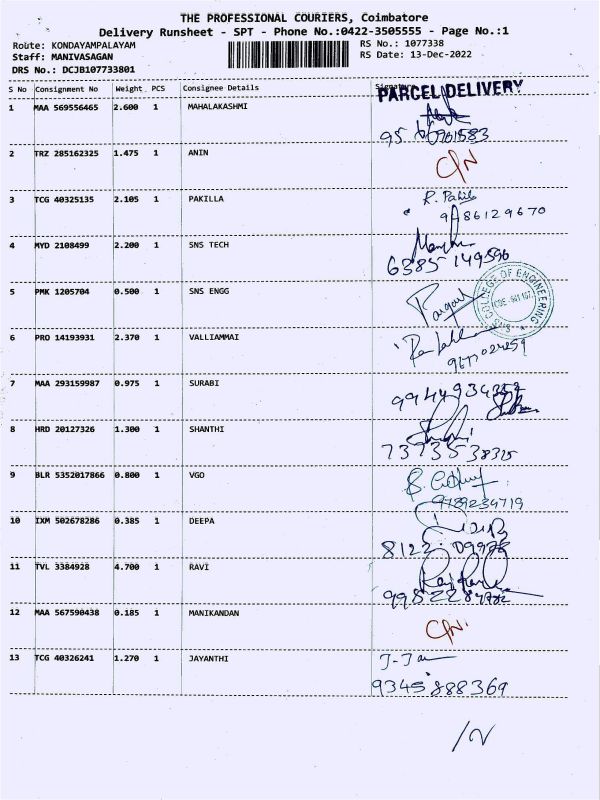 THE PROFESSIONAL COURIERS, Coimbatore
Delivery Runsheet - SPT - Phone No.:0422-3505555 - Page No.:1
Route: KONDAYAMPALAYAM RS No.: 1077338
Staff: MANIVASAGAN RS Date: 13-Dec-2022
DRS No.: DCJB107733801
S No Consignment No Weight PCS Consignee Details Signature
PARCEL DELIVERY
1 MAA 569556465 2.600 1 MAHALAKASHMI
2 TRZ 285162325 1.475 1 ANIN C/N
3 TCG 40325135 2.105 1 PAKILLA R. Pakila
9786129670
4 MYD 2108499 2.200 1 SNS TECH
6385 149596
5 PMK 1205704 0.500 1 SNS ENGG
SNS COLLEGE OF ENGINEERING
6 PRO 14193931 2.370 1 VALLIAMMAI
9677024259
7 MAA 293159987 0.975 1 SURABI
8 HRD 20127326 1.300 1 SHANTHI
7373538325
9 BLR 5352017866 0.800 1 VGO
9789234719
10 IXM 502678286 0.385 1 DEEPA
11 TVL 3384928 4.700 1 RAVI
12 MAA 567590438 0.185 1 MANIKANDAN C/N.
13 TCG 40326241 1.270 1 JAYANTHI
9345888369